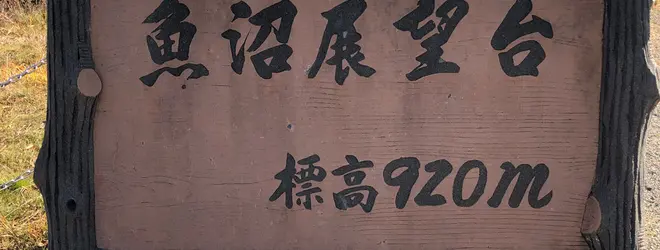 魚沼展望台
標高920m